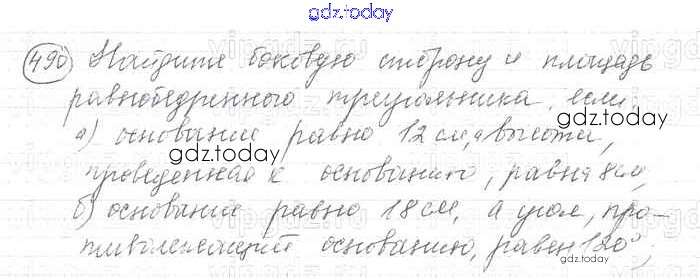 gdz.today
490 Найдите боковую сторону и площадь
равнобедренного треугольника, если:
а) основание равно 12 см, а высота,
gdz.today
gdz.today
проведенная к основанию, равна 8 см,
б) основание равно 18 см, а угол, про-
тиволежащий основанию, равен 120°,
gdz.today